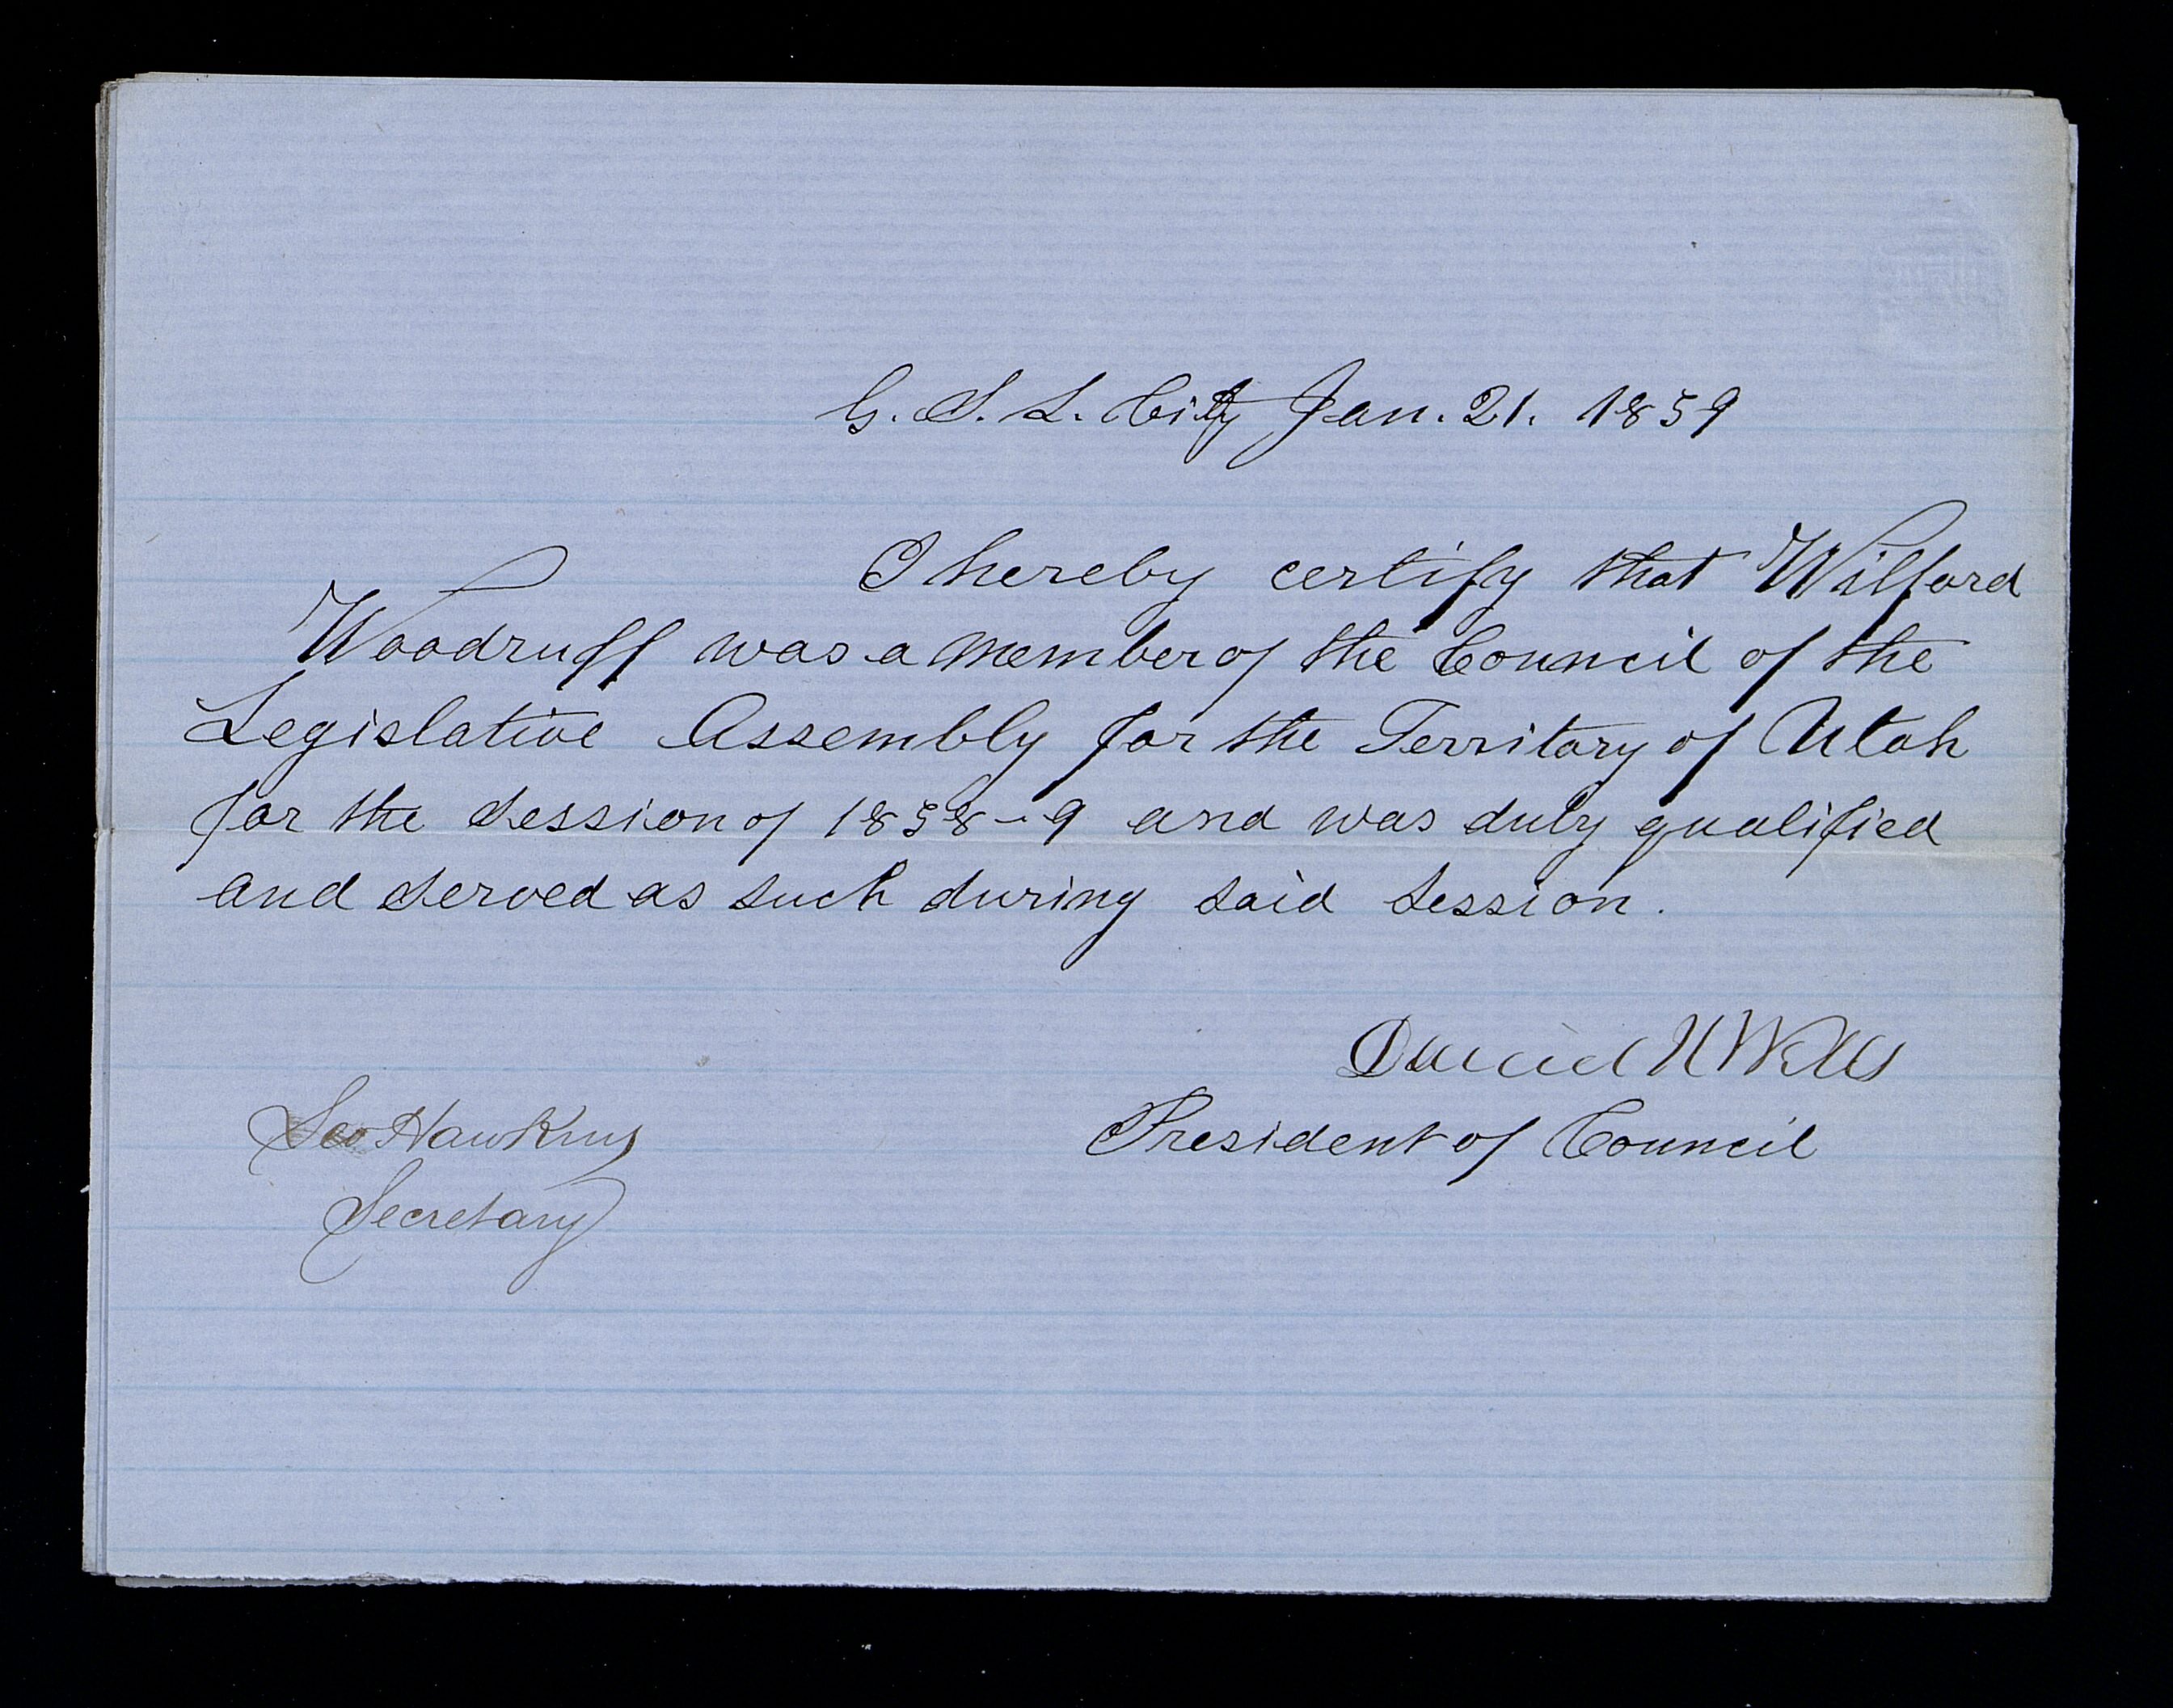 G. S. L. City Jan. 21. 1859
I hereby certify that Wilford
Woodruff was a member of the Council of the
Legislative Assembly for the Territory of Utah
for the Session of 1858-9 and was duly qualified
and served as such during said Session.
Daniel H Wells
President of Council
Leo Hawkins
Secretary